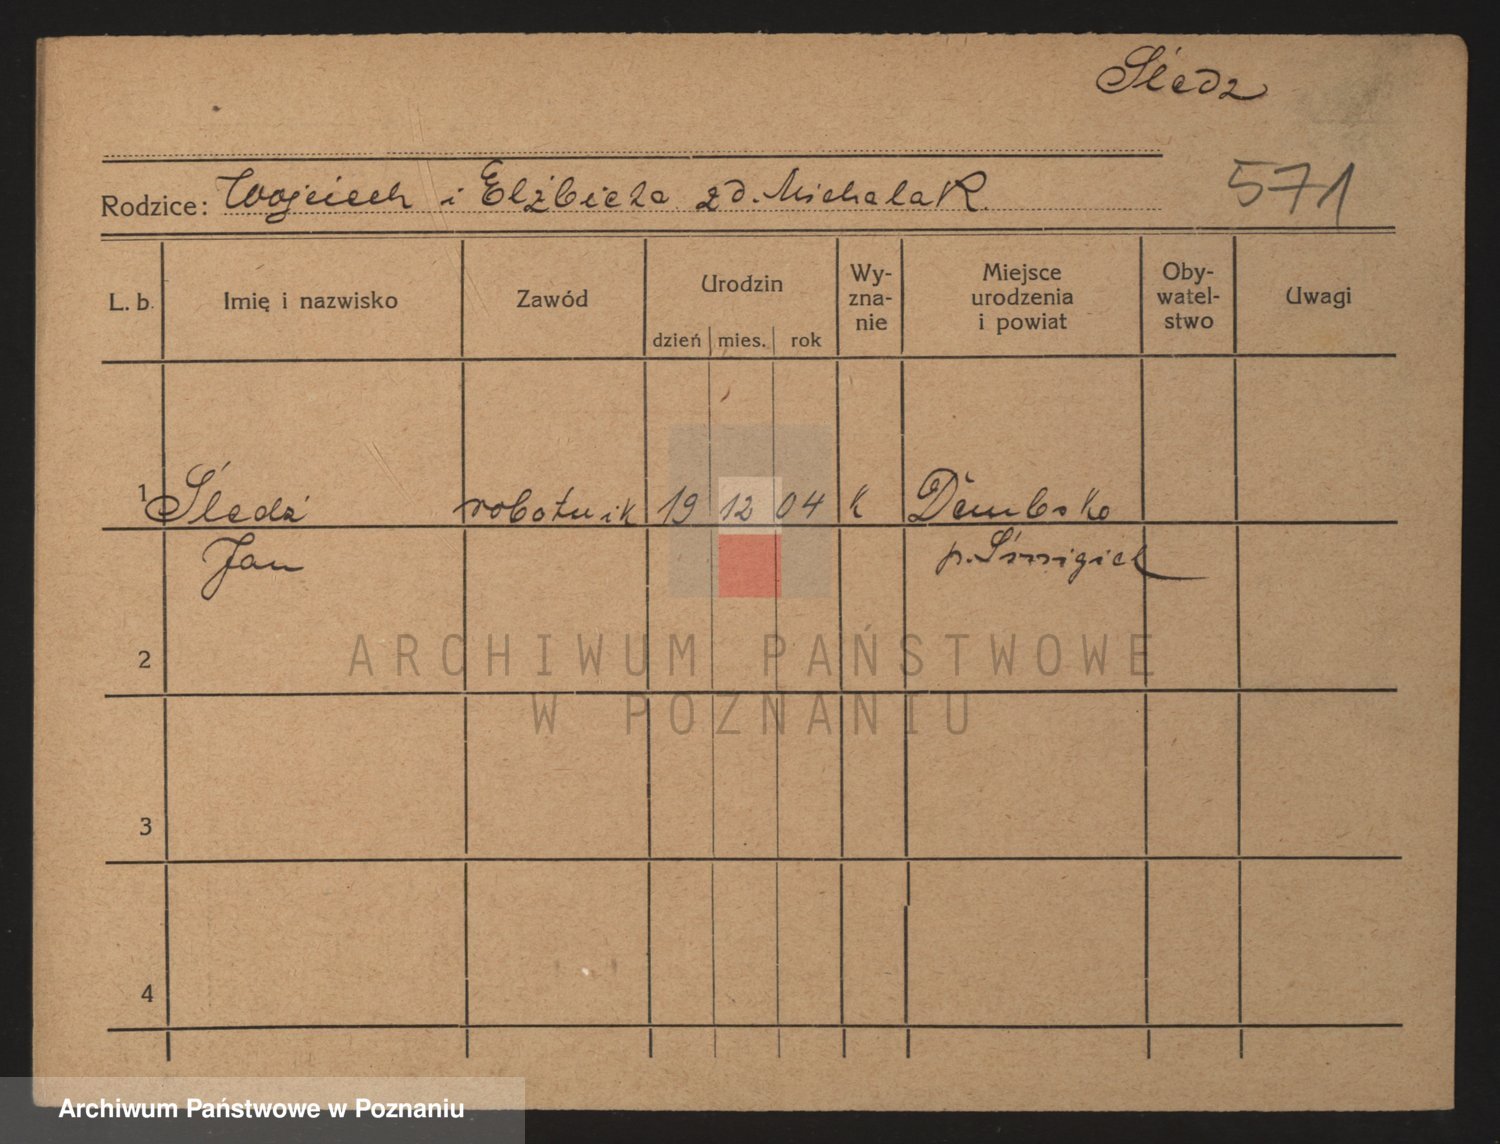 Śledz
Rodzice: Wojciech i Elżbieta zd. Michalak.
571
L. b. Imię i nazwisko Zawód Urodzin Wy-zna-nie Miejsce urodzenia i powiat Oby-watel-stwo Uwagi
dzień mies. rok
1 Śledź robotnik 19 12 04 k Dembsko
Jan p. Śmigiel
2
ARCHIWUM PAŃSTWOWE
W POZNANIU
3
4
Archiwum Państwowe w Poznaniu